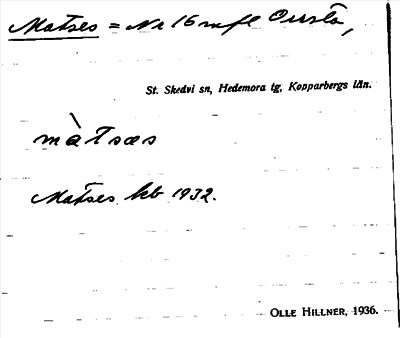 Matses = Nr 16 m fl Ovsta,
St. Skedvi sn, Hedemora tg, Kopparbergs län.
màtsæs
Matses kb 1932.
OLLE HILLNER, 1936.